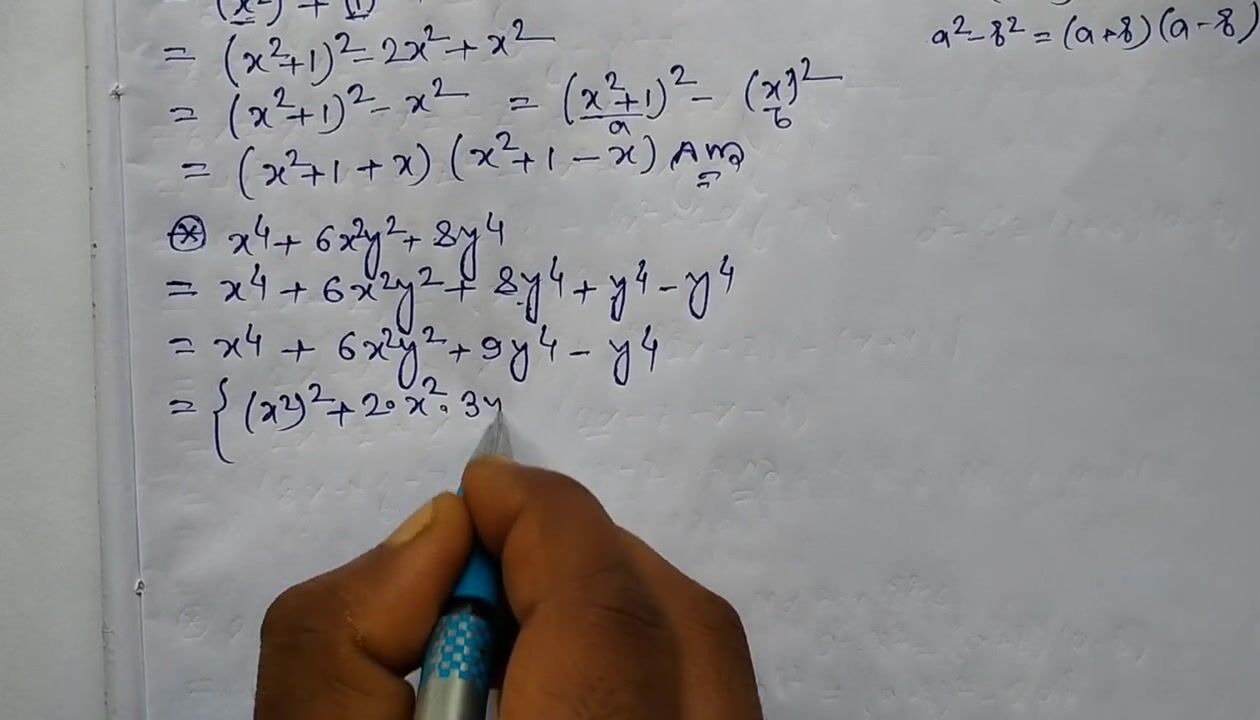 = (x²+1)² - 2x² + x²
a² - b² = (a+b)(a-b)
= (x²+1)² - x² = (x²+1)² - (x)²
a b
= (x²+1+x)(x²+1-x) Ans
⊛ x⁴ + 6x²y² + 8y⁴
= x⁴ + 6x²y² + 8y⁴ + y⁴ - y⁴
= x⁴ + 6x²y² + 9y⁴ - y⁴
= { (x²)² + 2·x²·3y